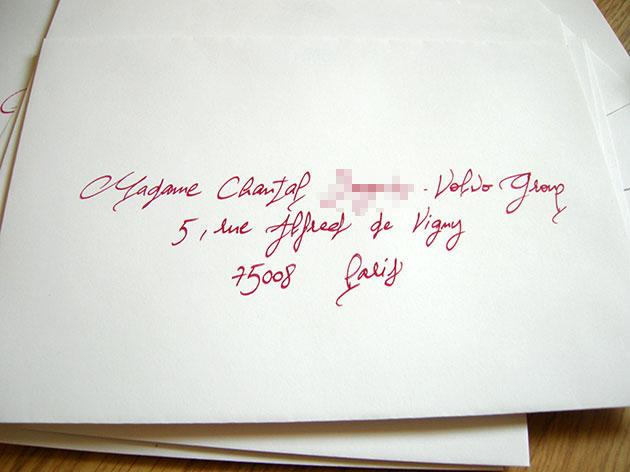 Madame Chantal - Volvo Group
5, rue Alfred de Vigny
75008 Paris